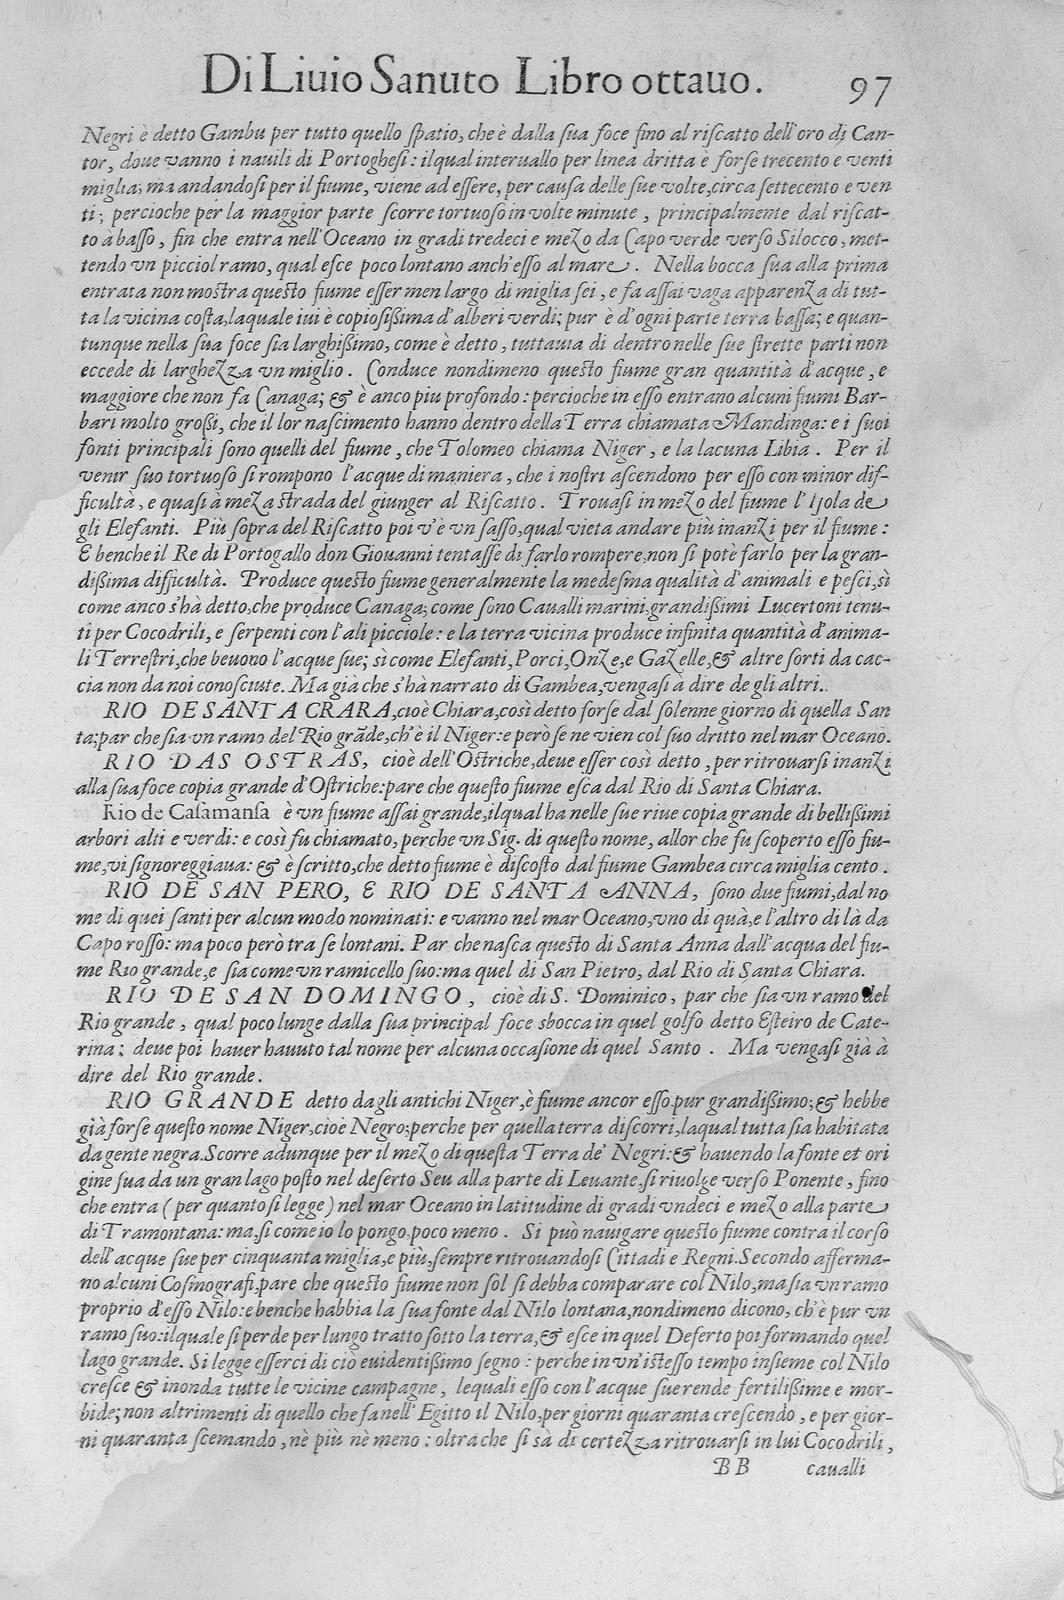 Di Liuio Sanuto Libro ottauo. 97
Negri è detto Gambu per tutto quello spatio, che è dalla sua foce fino al riscatto dell'oro di Can-
tor, doue vanno i nauili di Portoghesi: il qual interuallo per linea dritta è forse trecento e venti
miglia; ma andandosi per il fiume, viene ad essere, per causa delle sue volte, circa settecento e ven
ti; percioche per la maggior parte scorre tortuoso in volte minute, principalmente dal riscat-
to à basso, fin che entra nell'Oceano in gradi tredeci e mezo da Capo verde verso Silocco, met-
tendo vn picciol ramo, qual esce poco lontano anch'esso al mare. Nella bocca sua alla prima
entrata non mostra questo fiume esser men largo di miglia sei, e fa assai vaga apparenza di tut-
ta la vicina costa, laquale iui è copiosißima d'alberi verdi; pur è d'ogni parte terra bassa; e quan-
tunque nella sua foce sia larghißimo, come è detto, tuttauia di dentro nelle sue strette parti non
eccede di larghezza vn miglio. Conduce nondimeno questo fiume gran quantità d'acque, e
maggiore che non fa Canaga; & è anco piu profondo: percioche in esso entrano alcuni fiumi Bar-
bari molto großi, che il lor nascimento hanno dentro della Terra chiamata Mandinga: e i suoi
fonti principali sono quelli del fiume, che Tolomeo chiama Niger, e la lacuna Libia. Per il
venir suo tortuoso si rompono l'acque di maniera, che i nostri ascendono per esso con minor dif-
ficultà, e quasi à meza strada del giunger al Riscatto. Trouasi in mezo del fiume l'Isola de
gli Elefanti. Più sopra del Riscatto poi v'è vn sasso, qual vieta andare più inanzi per il fiume:
E benche il Re di Portogallo don Giouanni tentasse di farlo rompere, non si potè farlo per la gran-
dißima difficultà. Produce questo fiume generalmente la medesma qualità d'animali e pesci, sì
come anco s'hà detto, che produce Canaga; come sono Caualli marini, grandißimi Lucertoni tenu-
ti per Cocodrili, e serpenti con l'ali picciole: e la terra vicina produce infinita quantità d'anima-
li Terrestri, che beuono l'acque sue; sì come Elefanti, Porci, Onze, e Gazelle, & altre sorti da cac-
cia non da noi conosciute. Ma già che s'hà narrato di Gambea, vengasi à dire de gli altri.
RIO DE SANTA CRARA, cioè Chiara, così detto forse dal solenne giorno di quella San
ta; par che sia vn ramo del Rio grãde, ch'è il Niger: e però se ne vien col suo dritto nel mar Oceano.
RIO DAS OSTRAS, cioè dell'Ostriche, deue esser così detto, per ritrouarsi inanzi
alla sua foce copia grande d'Ostriche: pare che questo fiume esca dal Rio di Santa Chiara.
Rio de Casamansa è vn fiume assai grande, ilqual ha nelle sue riue copia grande di bellissimi
arbori alti e verdi: e così fu chiamato, perche vn Sig. di questo nome, allor che fu scoperto esso fiu-
me, vi signoreggiaua: & è scritto, che detto fiume è discosto dal fiume Gambea circa miglia cento.
RIO DE SAN PERO, E RIO DE SANTA ANNA, sono due fiumi, dal no
me di quei santi per alcun modo nominati: e vanno nel mar Oceano, vno di quà, e l'altro di là da
Capo rosso: ma poco però tra se lontani. Par che nasca questo di Santa Anna dall'acqua del fiu-
me Rio grande, e sia come vn ramicello suo: ma quel di San Pietro, dal Rio di Santa Chiara.
RIO DE SAN DOMINGO, cioè di S. Dominico, par che sia vn ramo del
Rio grande, qual poco lunge dalla sua principal foce sbocca in quel golfo detto Esteiro de Cate-
rina; deue poi hauer hauuto tal nome per alcuna occasione di quel Santo. Ma vengasi già à
dire del Rio grande.
RIO GRANDE detto dagli antichi Niger, è fiume ancor esso pur grandißimo; & hebbe
già forse questo nome Niger, cioè Negro; perche per quella terra discorri, laqual tutta sia habitata
da gente negra. Scorre adunque per il mezo di questa Terra de' Negri: & hauendo la fonte et ori
gine sua da un gran lago posto nel deserto Seu alla parte di Leuante, si riuolge verso Ponente, fino
che entra (per quanto si legge) nel mar Oceano in latitudine di gradi vndeci e mezo alla parte
di Tramontana: ma, si come io lo pongo, poco meno. Si può nauigare questo fiume contra il corso
dell'acque sue per cinquanta miglia, e più, sempre ritrouandosi Cittadi e Regni. Secondo afferma-
no alcuni Cosmografi, pare che questo fiume non sol si debba comparare col Nilo, ma sia vn ramo
proprio d'esso Nilo: e benche habbia la sua fonte dal Nilo lontana, nondimeno dicono, ch'è pur vn
ramo suo: ilquale si perde per lungo tratto sotto la terra, & esce in quel Deserto poi formando quel
lago grande. Si legge esserci di ciò euidentißimo segno: perche in vn'istesso tempo insieme col Nilo
cresce & inonda tutte le vicine campagne, lequali esso con l'acque sue rende fertilißime e mor-
bide; non altrimenti di quello che fa nell'Egitto il Nilo, per giorni quaranta crescendo, e per gior-
ni quaranta scemando, nè più nè meno: oltra che si sà di certezza ritrouarsi in lui Cocodrili,
BB caualli